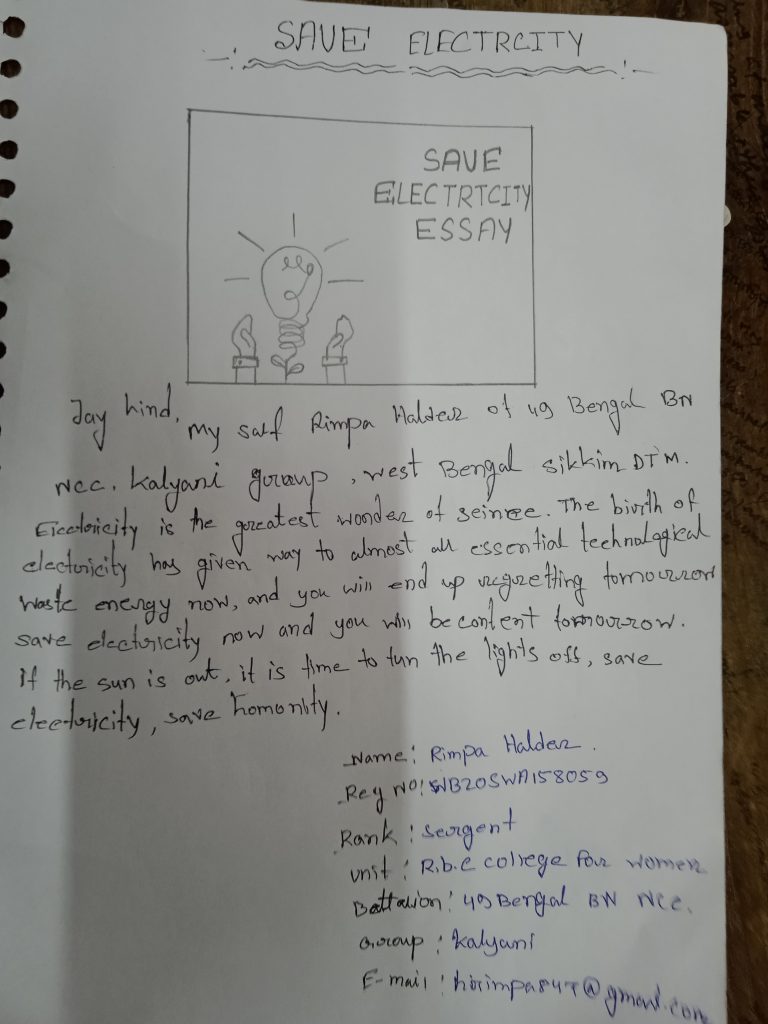 SAVE ELECTRCITY
SAVE
ELECTRTCITY
ESSAY
Jay hind, my salf Rimpa Halder of 49 Bengal BN
NCC. Kalyani group, west Bengal sikkim DTM.
Eiectoricity is the greatest wonder of The birth of
electricity has given way to almost all essential technological
waste energy now, and you will end up regretting tomourrow
save electricity now and you will be content tomourrow.
if the sun is out, it is time to tun the lights off, save
electricity, save homonity.
Name: Rimpa Halder.
Reg No: WB20SWA158059
Rank: sergent
unit: R.b.c college for women
Battalion: 49 Bengal BN NCC.
Group: kalyani
E-mail: